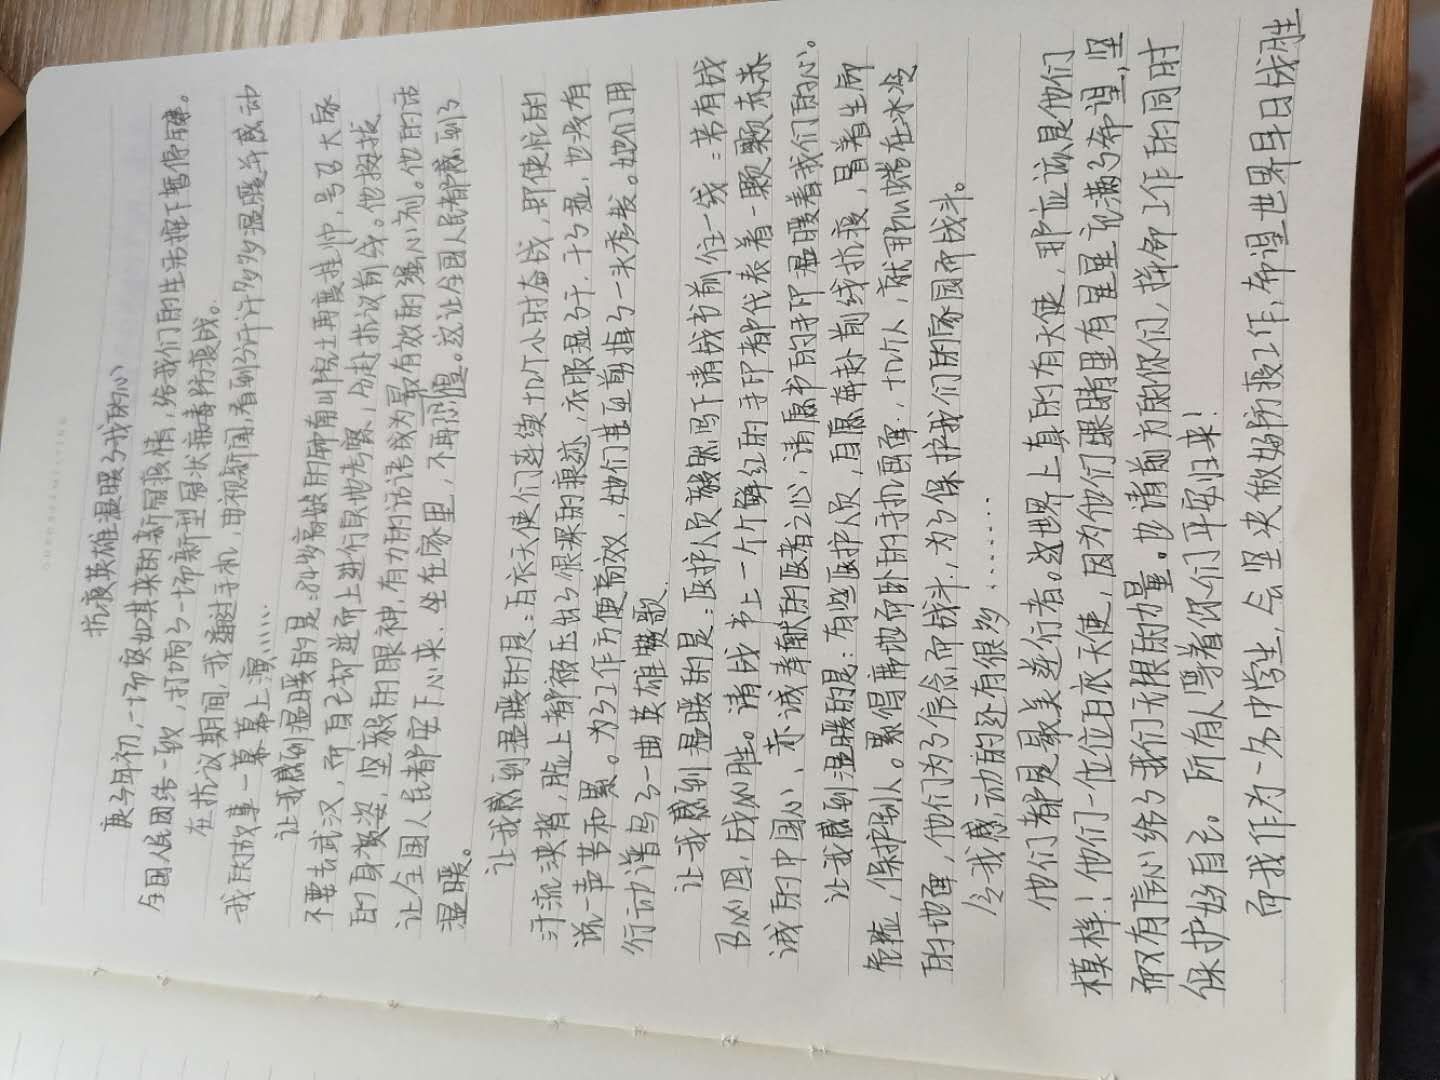 抗疫英雄温暖了我的心
庚子年初,一场突如其来的新冠疫情,给我们的生活按下暂停键。
全国人民团结一致,打响了一场新型冠状病毒防疫战。
在抗议期间,我翻过手机,电视新闻,看到了许许多多温暖并感动
我的故事一幕幕上演……
让我感到温暖的是:84岁高龄的钟南山院士再度挂帅,号召大家
不要去武汉,而自己却逆而上进行身地考察,分赴抗议前线。他挺拔
的身姿姿,坚毅的眼神,有力的话语成为最有效的强心剂。他的话
让全国人民都安下心来,坐在家里,不再恐慌。这让全国人民都感到了
温暖。
让我感到温暖的是:白衣天使们连续十几个小时奋战,即使忙的
汗流浃背,脸上都被压出了很深的痕迹,衣服湿了干,干了湿,也没有
说一声苦和累。为了工作方便高效,她们甚至剪掉了一头秀发。她们用
行动谱写了一曲英雄赞歌。
让我感到温暖的是:医护人员毅然写下请战书前往一线:若有战
召必回,战必胜。请战书上一个个鲜红的手印都代表着一颗颗赤赤
诚的中国心、赤诚奉献的医者之心,请愿书的手印温暖着我们的心。
让我感到温暖的是:有些医护人员,自愿奔赴前线抗疫,冒着生命
危险,保护别人。累得席地而卧的手扎再深,十几个人,就那么睡在冰冷
的地面,他们为了信念而战斗,为了保护我们的家园而战斗。
令我感动的还有很多………
他们都是最美逆行者。这世界上真的有天使,那应该是他们
模样!他们一位位白衣天使,因为他们眼睛里有星星充满的希望,坚
毅有信心给了我们无限的力量。也请前方的你们,拼命工作的同时
保护好自己。所有人等着你们平安归来!
而我作为一名中学生,会坚决做好防疫工作,希望世界早日战胜